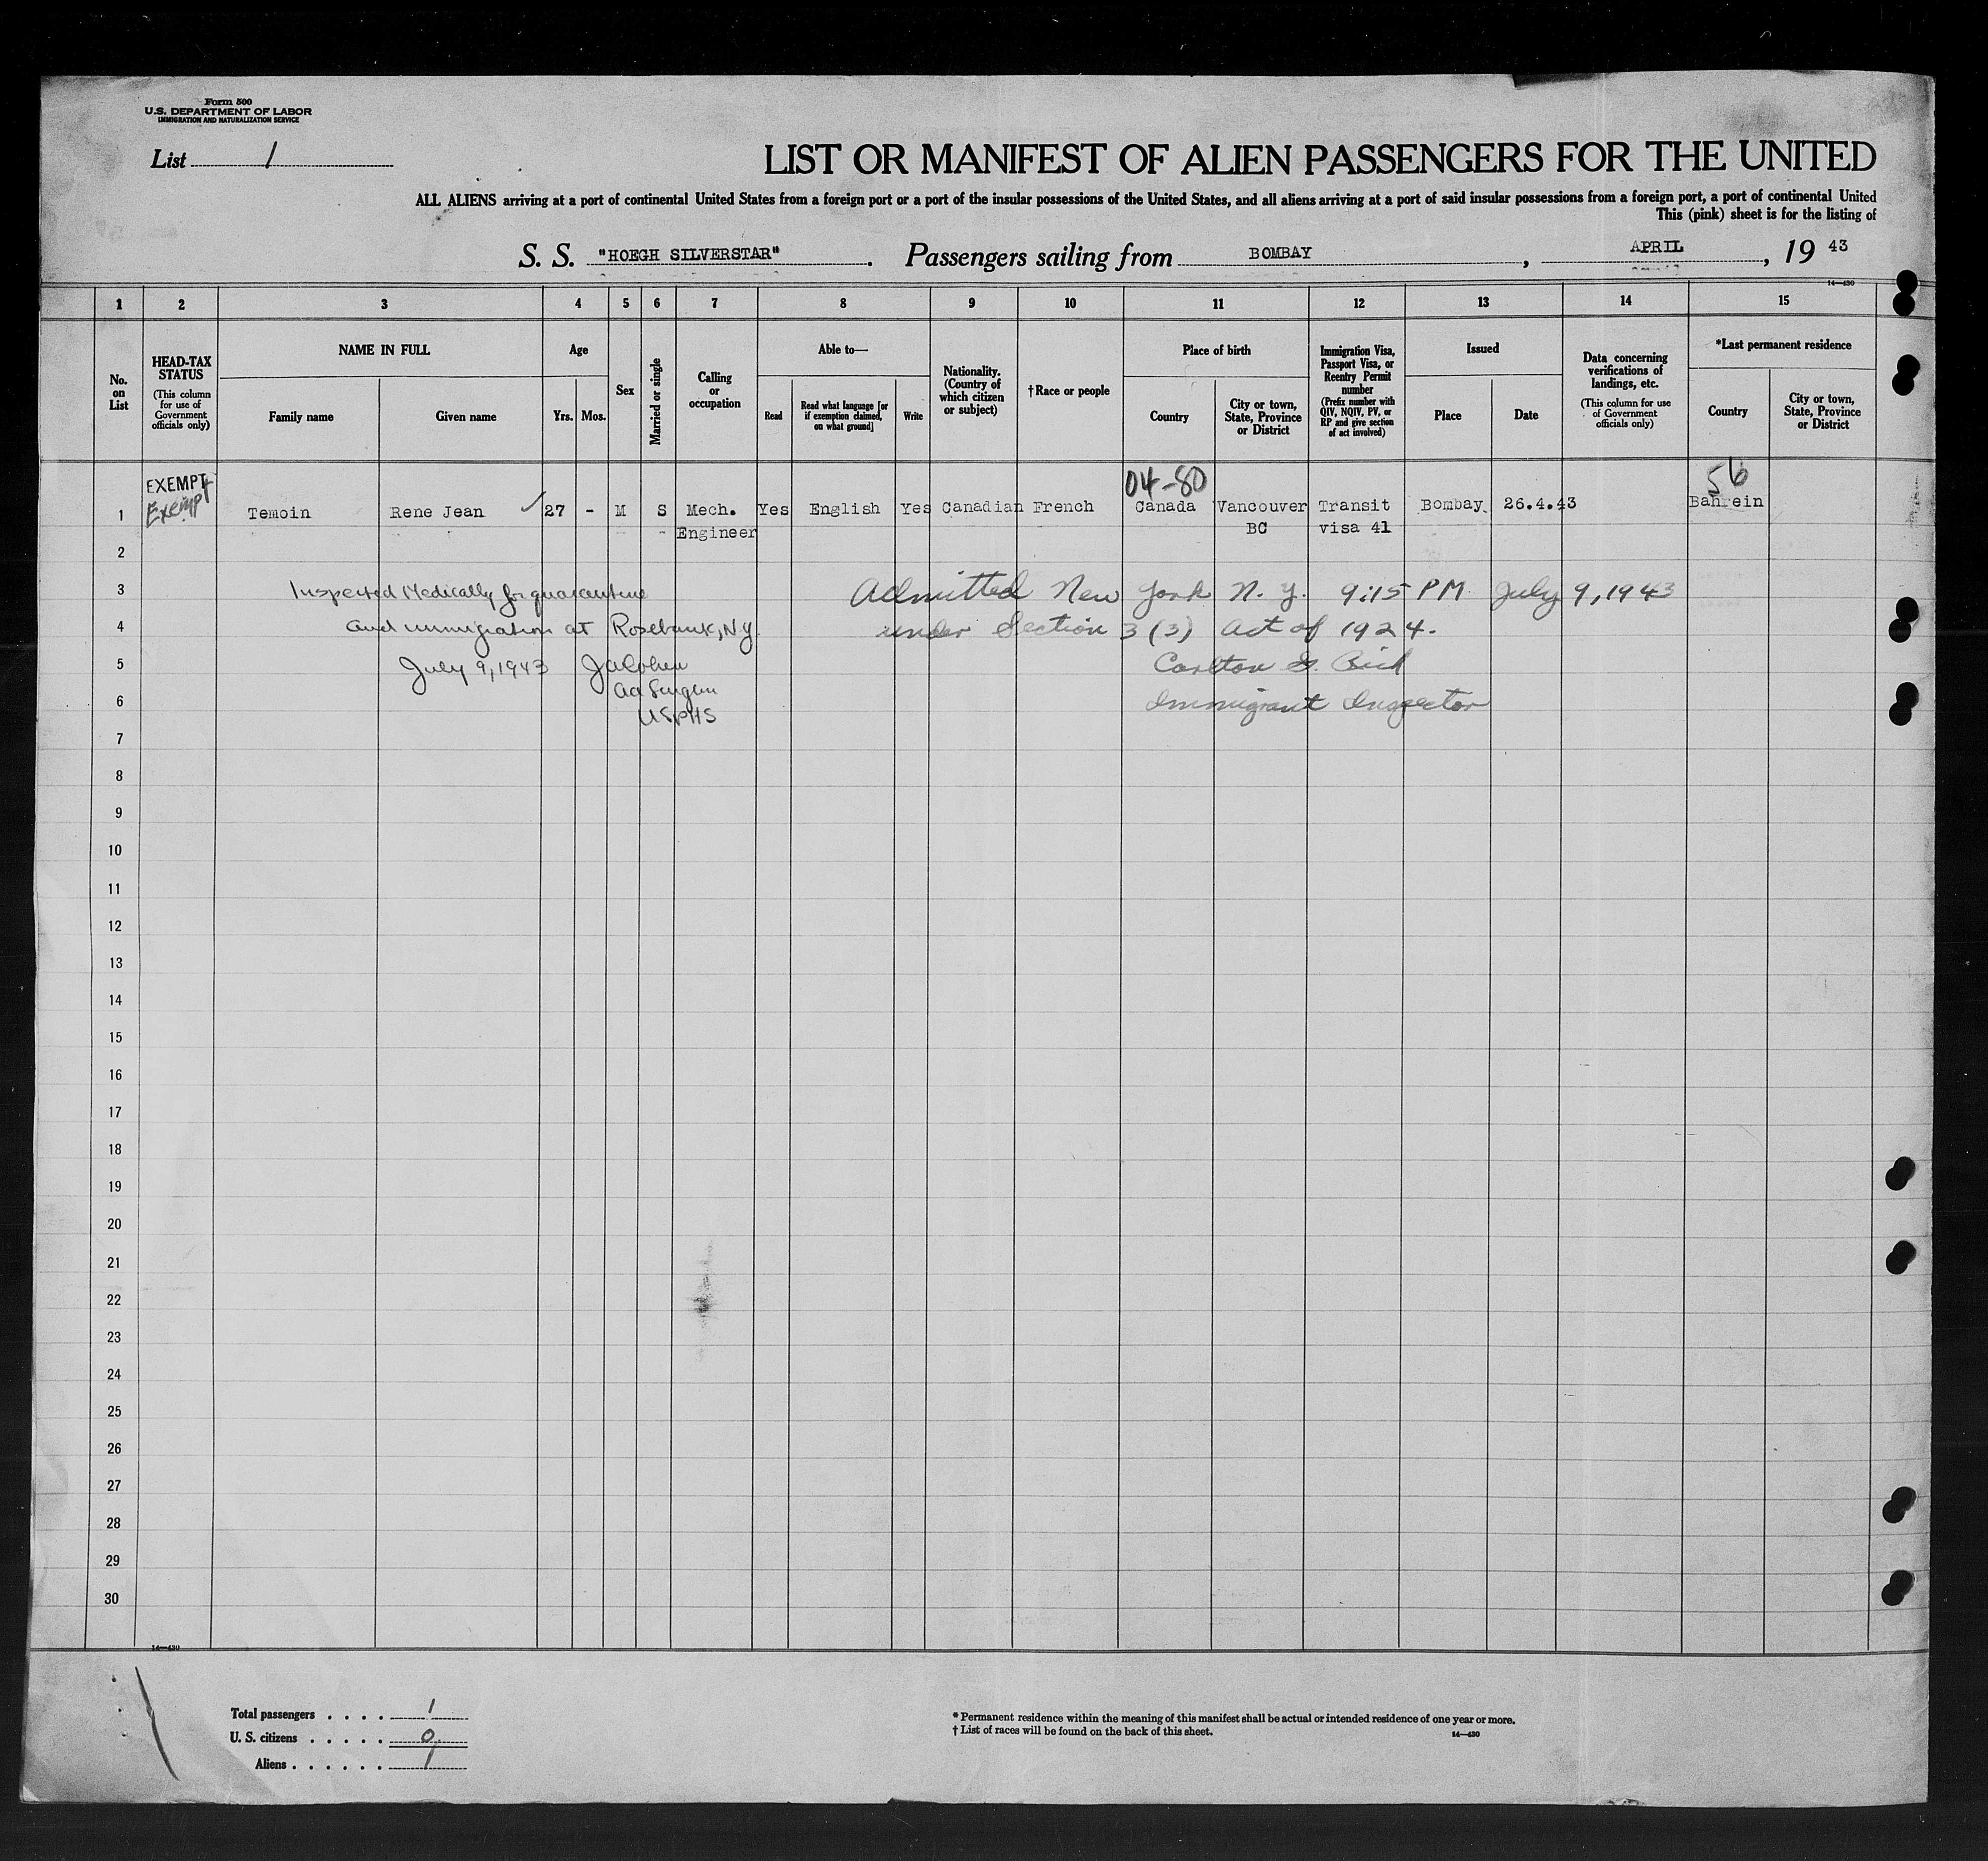 Form 500
U.S. DEPARTMENT OF LABOR
IMMIGRATION AND NATURALIZATION SERVICE
List 1
LIST OR MANIFEST OF ALIEN PASSENGERS FOR THE UNITED
ALL ALIENS arriving at a port of continental United States from a foreign port or a port of the insular possessions of the United States, and all aliens arriving at a port of said insular possessions from a foreign port, a port of continental United
This (pink) sheet is for the listing of
S. S. "HOEGH SILVERSTAR". Passengers sailing from BOMBAY, APRIL, 19 43
14—430
1 2 3 4 5 6 7 8 9 10 11 12 13 14 15
No. on List
HEAD-TAX STATUS
(This column for use of Government officials only)
NAME IN FULL
Family name
Given name
Age
Yrs. Mos.
Sex
Married or single
Calling or occupation
Able to—
Read
Read what language [or if exemption claimed, on what ground]
Write
Nationality. (Country of which citizen or subject)
†Race or people
Place of birth
Country
City or town, State, Province or District
Immigration Visa, Passport Visa, or Reentry Permit number
(Prefix number with QIV, NQIV, PV, or RP and give section of act involved)
Issued
Place
Date
Data concerning verifications of landings, etc.
(This column for use of Government officials only)
*Last permanent residence
Country
City or town, State, Province or District
EXEMPT 04-80 56
1 Exempt Temoin Rene Jean 27 - M S Mech. Yes English Yes Canadian French Canada Vancouver Transit Bombay 26.4.43 Bahrein
Engineer BC visa 41
2
3 Inspected Medically for quarantine Admitted New York N.Y. 9:15 PM July 9, 1943
4 and immigration at Rosebank, NY under Section 3 (3) Act of 1924.
5 July 9, 1943 JACohen Carlton
6 Immigrant Inspector
USPHS
7
8
9
10
11
12
13
14
15
16
17
18
19
20
21
22
23
24
25
26
27
28
29
30
14—430
Total passengers . . . . 1
U. S. citizens . . . . . 0
Aliens . . . . . . 1
* Permanent residence within the meaning of this manifest shall be actual or intended residence of one year or more.
† List of races will be found on the back of this sheet.
14—430